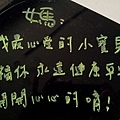 女馬：
我最心愛的小寶貝
福休永遠健康平安
開開心心的唷！